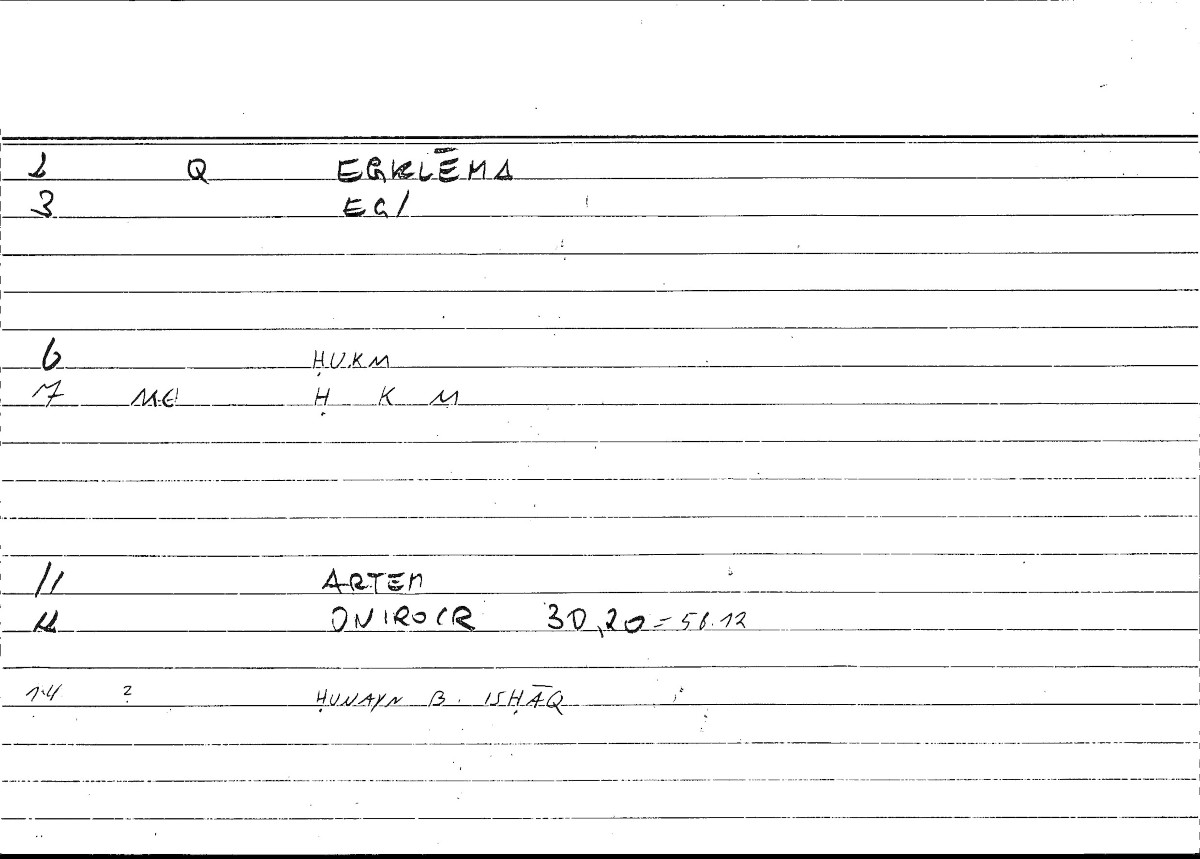 2 Q EGKLĒMA
3 EG/
6 ḤUKM
7 ME Ḥ K M
11 ARTEM
12 ONIROCR 30,20 = 56.12
14 2 ḤUNAYN B. ISḤĀQ